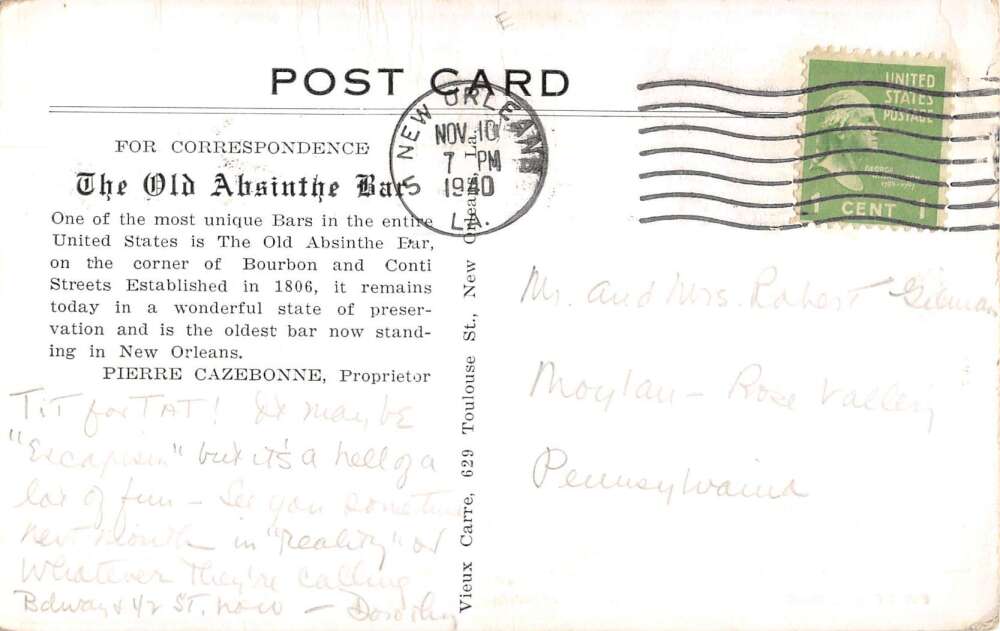 E
POST CARD
NEW ORLEANS
NOV. 10
7 PM
1940
LA.
UNITED
STATES
POSTAGE
GEORGE
1 CENT 1
FOR CORRESPONDENCE
The Old Absinthe Bar
One of the most unique Bars in the entire
United States is The Old Absinthe Bar,
on the corner of Bourbon and Conti
Streets Established in 1806, it remains
today in a wonderful state of preser-
vation and is the oldest bar now stand-
ing in New Orleans.
PIERRE CAZEBONNE, Proprietor
TIT for TAT! It may be
"Escapism" but it's a hell of a
lot of fun – See you sometime
next month in "reality" or
whatever they're calling
Bdway & 42 ST. now – Dorothy
Vieux Carre, 629 Toulouse St., New Orleans, La.
Mr. and Mrs. Robert Gilman
Moylan – Rose Valley
Pennsylvania